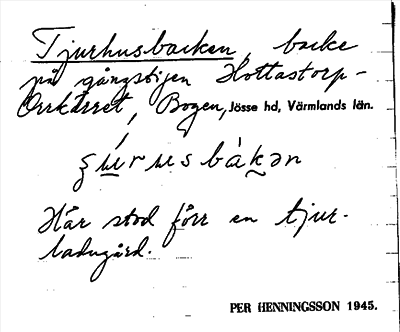 Tjurhusbacken, backe
på gångstigen Hottastorp-
Orrkärret, Bogen, Jösse hd, Värmlands län.
Här stod förr en tjur-
ladugård.
PER HENNINGSSON 1945.